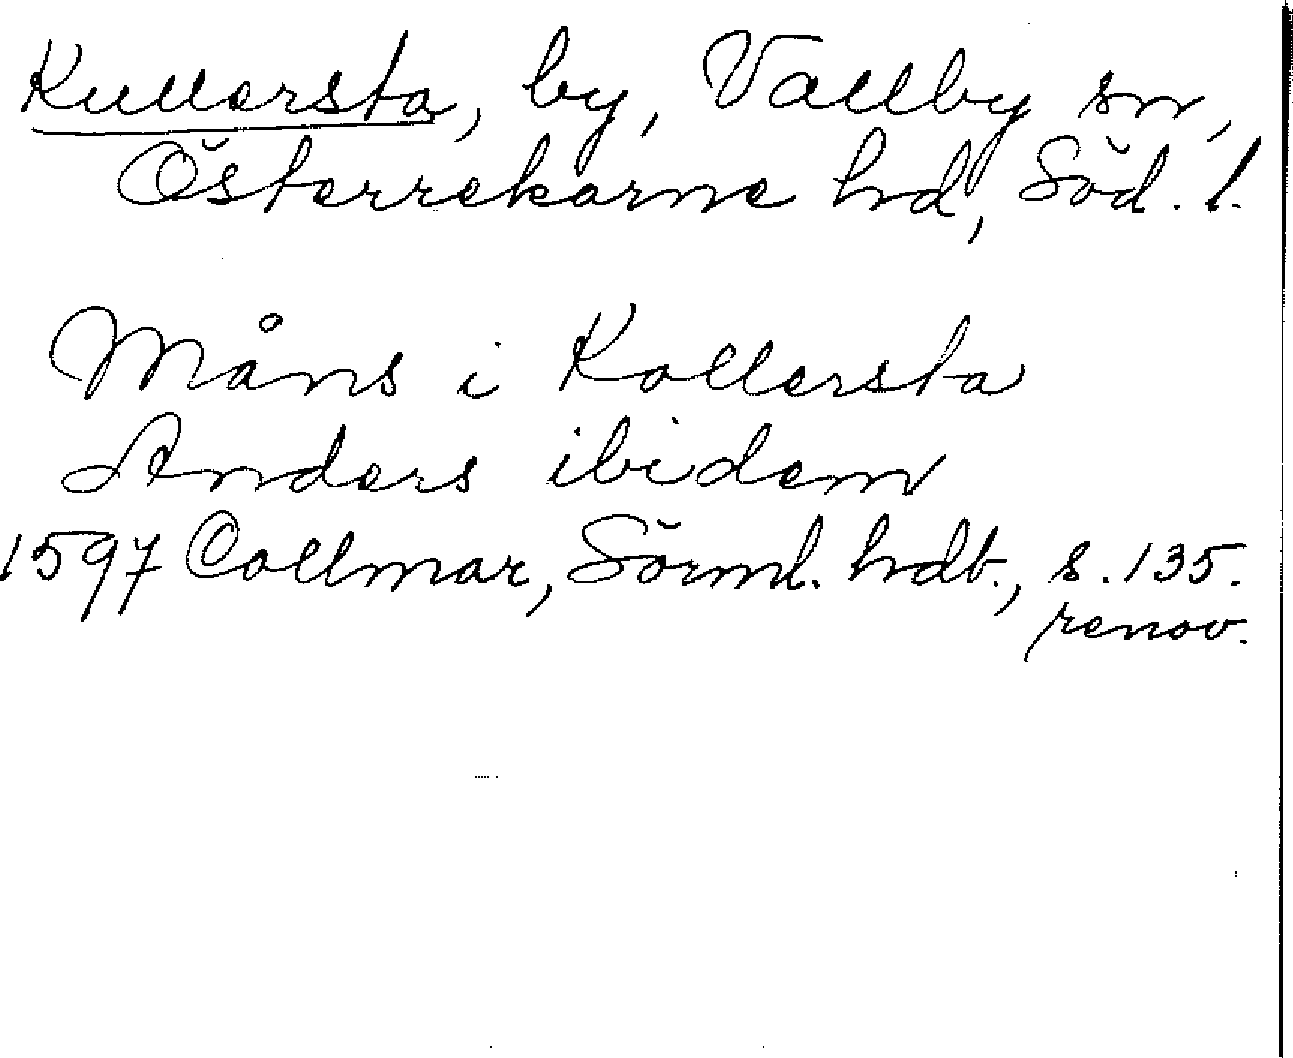 Kullersta, by, Vallby sn,
Österrekarne hd, Söd. l.
Måns i Kollersta
Anders ibidem
1597 Collmar, Sörml. hdb., s. 135.
renov.